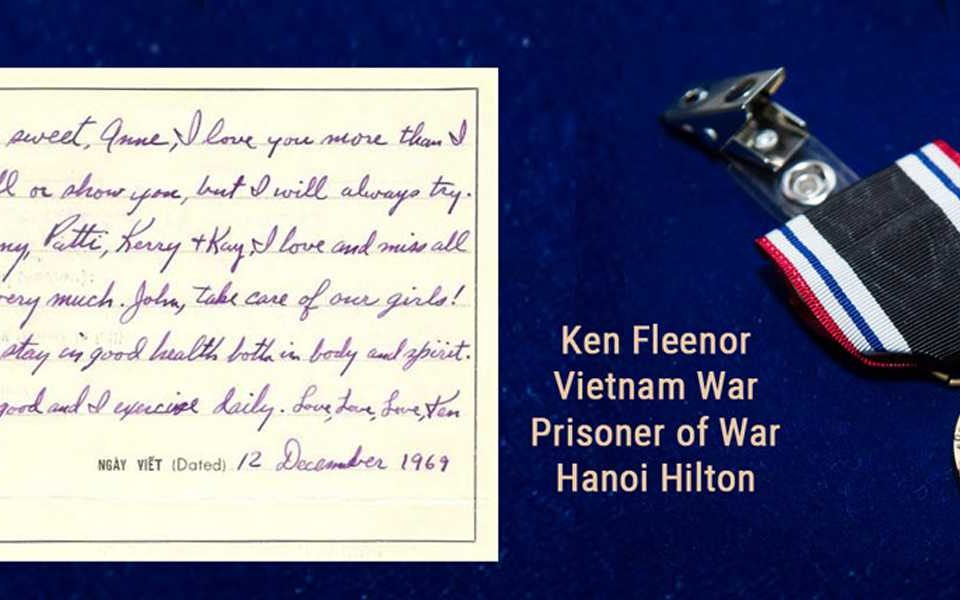 sweet, Anne, I love you more than I
or show you, but I will always try.
Patti, Kerry + Kay, I love and miss all
very much. John, take care of our girls!
stay in good health both in body and spirit.
good and I exercise daily. Love, Love, Love, Ken
NGÀY VIẾT (Dated) 12 December 1969
Ken Fleenor
Vietnam War
Prisoner of War
Hanoi Hilton